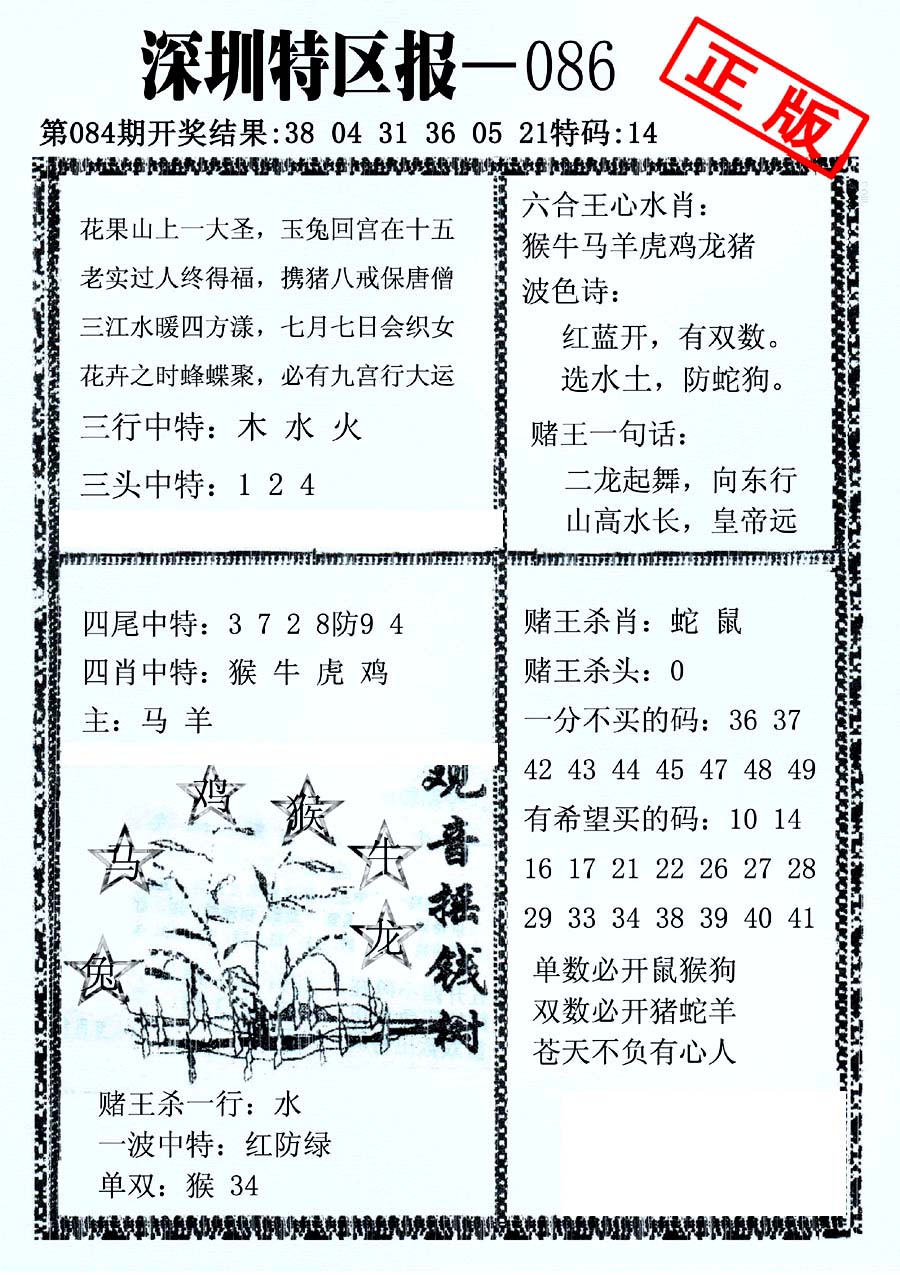 深圳特区报—086
正版
第084期开奖结果:38 04 31 36 05 21特码:14
花果山上一大圣，玉兔回宫在十五
老实过人终得福，携猪八戒保唐僧
三江水暖四方漾，七月七日会织女
花卉之时蜂蝶聚，必有九宫行大运
三行中特：木 水 火
三头中特：1 2 4
六合王心水肖：
猴牛马羊虎鸡龙猪
波色诗：
红蓝开，有双数。
选水土，防蛇狗。
赌王一句话：
二龙起舞，向东行
山高水长，皇帝远
四尾中特：3 7 2 8防9 4
四肖中特：猴 牛 虎 鸡
主：马 羊
鸡
猴
马
牛
龙
兔
观音摇钱树
赌王杀一行：水
一波中特：红防绿
单双：猴 34
赌王杀肖：蛇 鼠
赌王杀头：0
一分不买的码：36 37
42 43 44 45 47 48 49
有希望买的码：10 14
16 17 21 22 26 27 28
29 33 34 38 39 40 41
单数必开鼠猴狗
双数必开猪蛇羊
苍天不负有心人